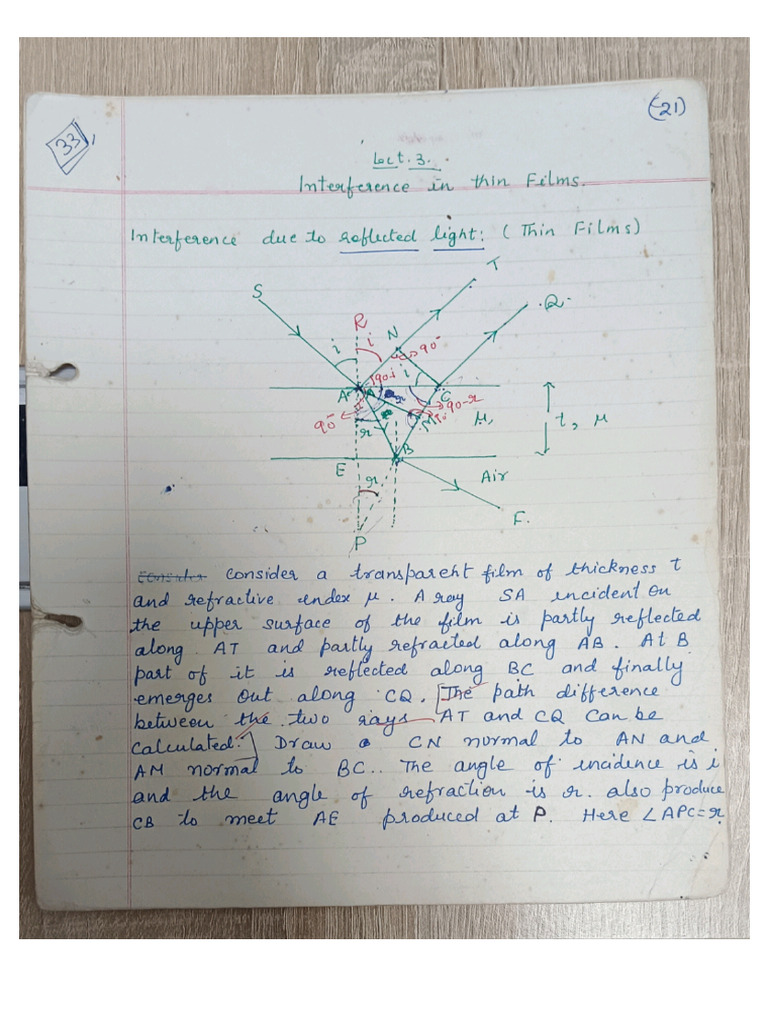 (21)
33
Lect. 3.
Interference in thin Films.
Interference due to reflected light: (Thin Films)
S
T
R
Q.
i
i
N
90°
90-i
i
A
C
r
90-r
90°
M
r
μ,
t, μ
B
E
r
Air
F.
P
Consider a transparent film of thickness t
and refractive index μ. A ray SA incident on
the upper surface of the film is partly reflected
along AT and partly refracted along AB. At B
part of it is reflected along BC and finally
emerges out along CQ. [The path difference
between the two rays AT and CQ Can be
Calculated.] Draw a CN normal to AN and
AM normal to BC.. The angle of incidence is i
and the angle of refraction is r. also produce
CB to meet AE produced at P. Here ∠APC=r